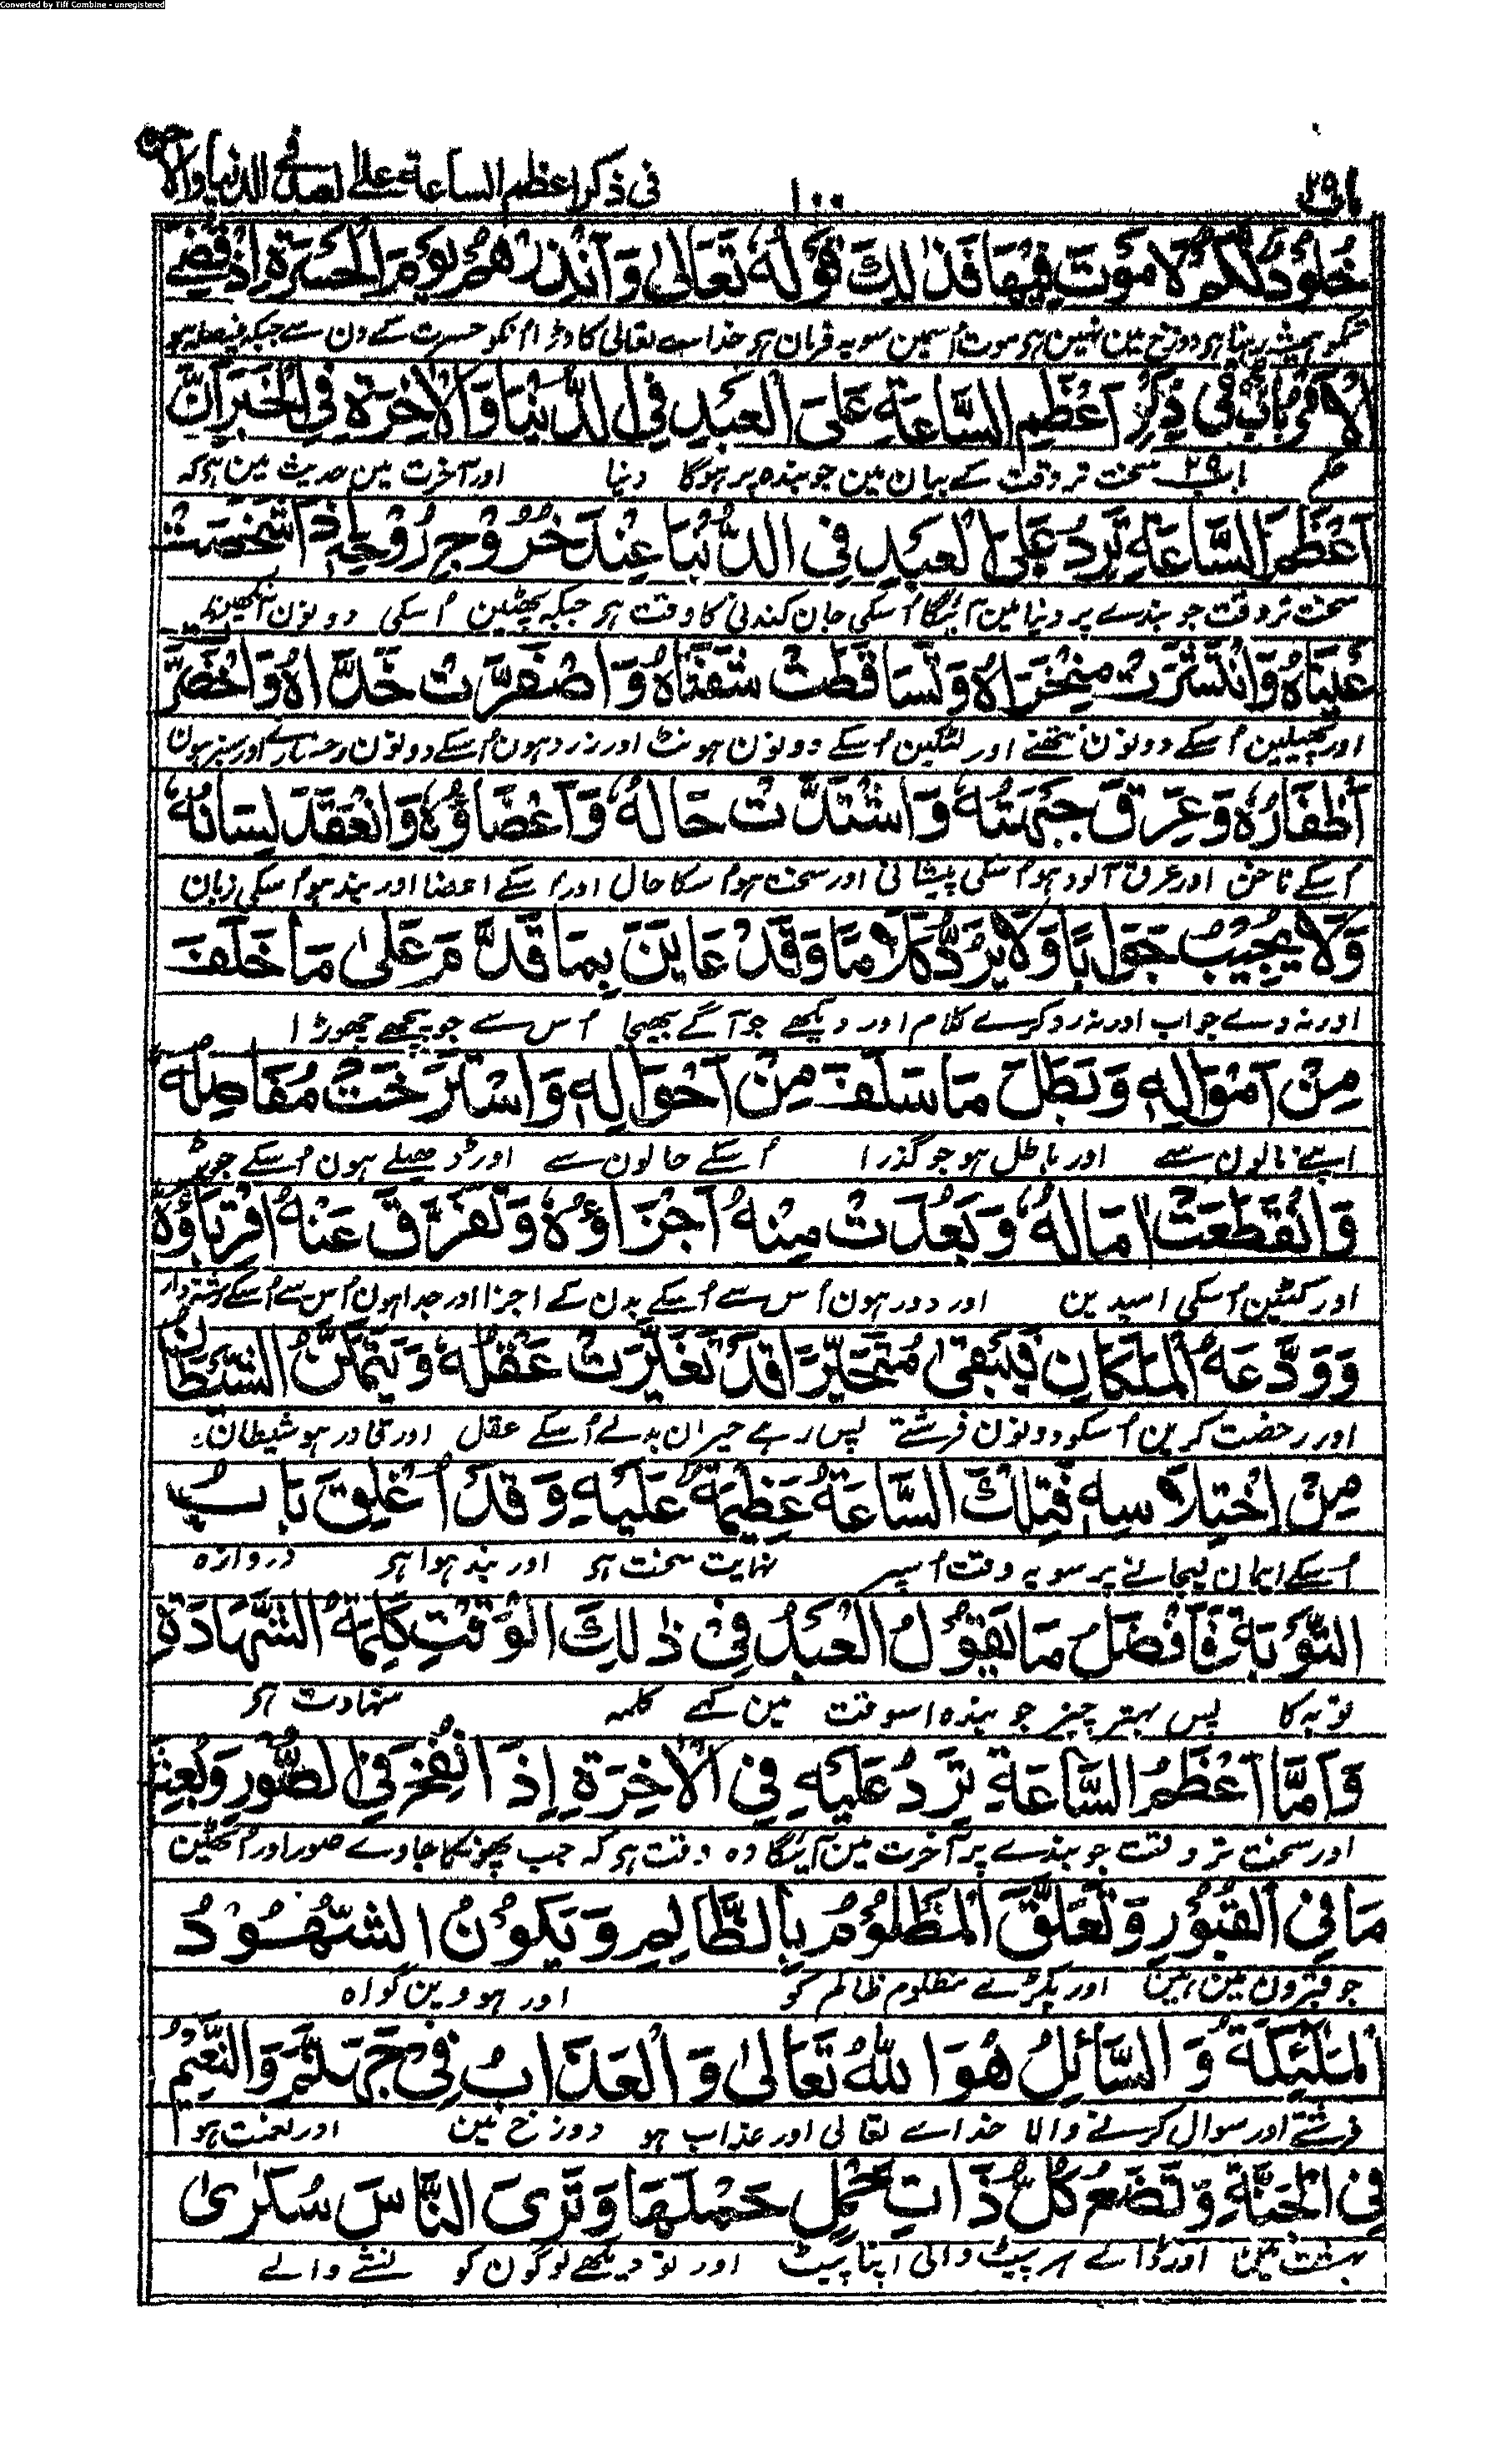 Converted by Tiff Combine - unregistered
باب ٢٩
١٠٠
فی ذکر اعظم الساعة علی العبد فی الدنیا والآخرة
خُلُوْدٌ لَكُمْ لَا مَوْتَ فِيْهَا فَذٰلِكَ قَوْلُهٗ تَعَالٰى وَاَنْذِرْهُمْ يَوْمَ الْحَسْرَةِ اِذْ قُضِيَ
تمکو ہمیشہ رہنا ہو دوزخ مین نہین ہو موت اُسمین سو یہ فرمان ہو خداے تعالی کا ڈرا انکو حسرت کے دن سے جبکہ فیصلہ ہو
الْاَمْرُ بَابٌ فِيْ ذِكْرِ اَعْظَمِ السَّاعَةِ عَلَى الْعَبْدِ فِي الدُّنْيَا وَالْاٰخِرَةِ فِي الْخَبَرِ اَنَّ
حکم باب ٢٩ سخت تر وقت کے بیان مین جو بندہ پر ہوگا دنیا اور آخرت مین حدیث مین ہو کہ
اَعْظَمَ السَّاعَةِ تَرِدُ عَلَى الْعَبْدِ فِي الدُّنْيَا عِنْدَ خُرُوْجِ رُوْحِهٖ اِذَا شَخَصَتْ
سخت تر وقت جو بندے پر دنیا مین آئیگا اُسکی جان کندنی کا وقت ہو جبکہ پھٹین اُسکی دونون آنکھین
عَيْنَاهُ وَانْتَشَرَتْ مِنْخَرَاهُ وَتَسَاقَطَتْ شَفَتَاهُ وَاصْفَرَّتْ خَدَّاهُ وَاخْضَرَّ
اور پھیلین اُسکے دونون نتھنے اور لٹکین اُسکے دونون ہونٹ اور زرد ہون اُسکے دونون رخسارے اور سبز ہون
اَظْفَارُهٗ وَعَرِقَ جَبْهَتُهٗ وَاشْتَدَّتْ حَالُهٗ وَاَعْضَاؤُهٗ وَانْعَقَدَ لِسَانُهٗ
اُسکے ناخن اور عرق آلود ہو اُسکی پیشانی اور سخت ہو اُسکا حال اور اُسکے اعضا اور بند ہو اُسکی زبان
وَلَا يُجِيْبُ جَوَابًا وَلَا يَرُدُّ كَلَامًا وَقَدْ عَايَنَ بِمَا قَدَّمَ وَعَلٰى مَا خَلَفَ
اور نہ دے جواب اور نہ رد کرے کلام اور دیکھے جو آگے بھیجا اُس سے جو پیچھے چھوڑا
مِنْ اَمْوَالِهٖ وَبَطَلَ مَا سَلَفَ مِنْ اَحْوَالِهٖ وَاسْتَرْخَتْ مَفَاصِلُهٗ
اپنے مالون سے اور باطل ہو جو گذرا اُسکے حالون سے اور ڈھیلے ہون اُسکے جوڑ
وَانْقَطَعَتْ اٰمَالُهٗ وَبَعُدَتْ مِنْهُ اَجْزَاؤُهٗ وَتَفَرَّقَ عَنْهُ اَقْرِبَاؤُهٗ
اور کٹین اُسکی امیدین اور دور ہون اُس سے اُسکے بدن کے اجزا اور جدا ہون اُس سے اُسکے رشتہ دار
وَوَدَّعَهُ الْمَلَكَانِ فَيَبْقٰى مُتَحَيِّرًا قَدْ تَغَيَّرَتْ عَقْلُهٗ وَيَتَمَكَّنُ الشَّيْطَانُ
اور رخصت کرین اُسکو دونون فرشتے پس رہے حیران بدلے اُسکے عقل اور قادر ہو شیطان
مِنْ اِخْتِلَاسِهٖ فَتِلْكَ السَّاعَةُ عَظِيْمَةٌ عَلَيْهِ وَقَدْ اُغْلِقَ بَابُ
اُسکے ایمان لیجانے پر سو یہ وقت اُسپر نہایت سخت ہو اور بند ہوا ہو دروازہ
التَّوْبَةِ فَاَفْضَلُ مَا يَقُوْلُ الْعَبْدُ فِيْ ذٰلِكَ الْوَقْتِ كَلِمَةُ الشَّهَادَةِ
توبہ کا پس بہتر چیز جو بندہ اسوقت مین کہے کلمہ شہادت ہو
وَاَمَّا اَعْظَمُ السَّاعَةِ تَرِدُ عَلَيْهِ فِي الْاٰخِرَةِ اِذَا نُفِخَ فِي الصُّوْرِ وَبُعِثَ
اور سخت تر وقت جو بندے پر آخرت مین آئیگا وہ وقت ہو کہ جب پھونکا جاوے صور اور اُٹھین
مَا فِي الْقُبُوْرِ وَتَعَلَّقَ الْمَظْلُوْمُ بِالظَّالِمِ وَيَكُوْنُ الشُّهُوْدُ
جو قبرون مین ہین اور پکڑے مظلوم ظالم کو اور ہووین گواہ
الْمَلٰئِكَةُ وَالسَّائِلُ هُوَ اللّٰهُ تَعَالٰى وَالْعَذَابُ فِيْ جَهَنَّمَ وَالنَّعِيْمُ
فرشتے اور سوال کرنے والا خداے تعالی اور عذاب ہو دوزخ مین اور نعمت ہو
فِي الْجَنَّةِ وَتَضَعُ كُلُّ ذَاتِ حَمْلٍ حَمْلَهَا وَتَرَى النَّاسَ سُكَرٰى
بہشت مین اور ڈالے ہر پیٹ والی اپنا پیٹ اور تو دیکھے لوگون کو نشے والے